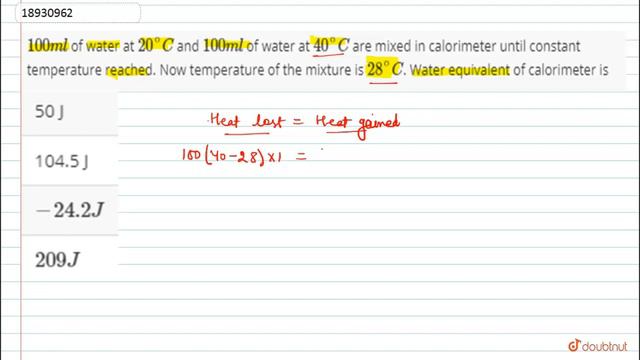 18930962
100ml of water at 20°C and 100ml of water at 40°C are mixed in calorimeter until constant
temperature reached. Now temperature of the mixture is 28°C. Water equivalent of calorimeter is
50 J
Heat lost = Heat gained
100(40-28)×1 =
104.5 J
−24.2J
209J
doubtnut